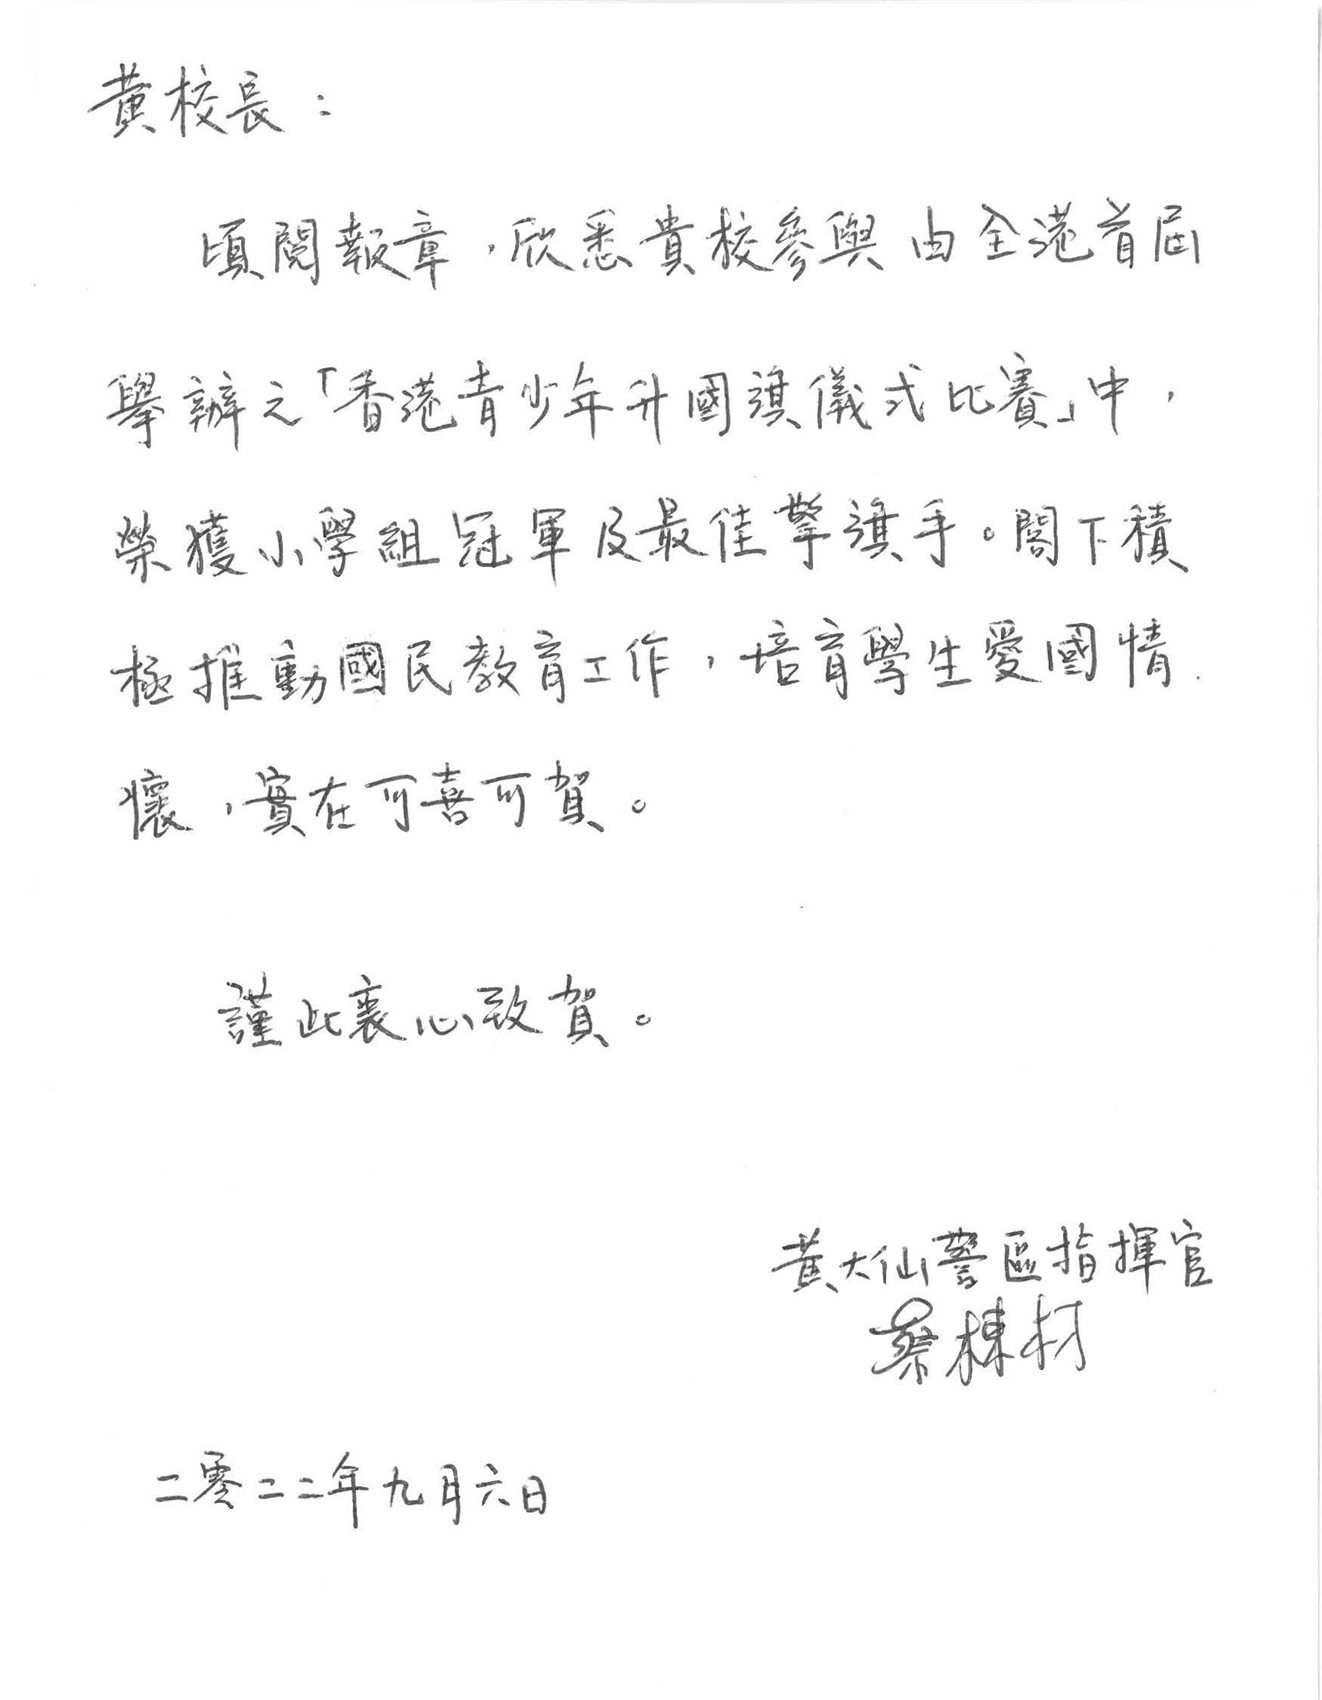 黃校長：
頃閱報章，欣悉貴校參與由全港首屆
舉辦之「香港青少年升國旗儀式比賽」中，
榮獲小學組冠軍及最佳擎旗手。閣下積
極推動國民教育工作，培育學生愛國情
懷，實在可喜可賀。
謹此衷心致賀。
黃大仙警區指揮官
蔡棟材
二零二二年九月六日